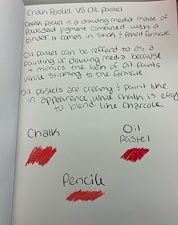 Chalk Pastel VS Oil Pastel
Chalk Pastel is a drawing media made of
Powdered pigment combined with a
binder it comes in stick & Pencil formate
Oil pastel can be refford to as a
painting or drawing media because
it mimics the look of oil paints
while sticking to one formate
Oil pastels are creamy & paint like
in appearance while chalk is easy
to blend like charcole.
Chalk
Oil
Pastel
Pencile